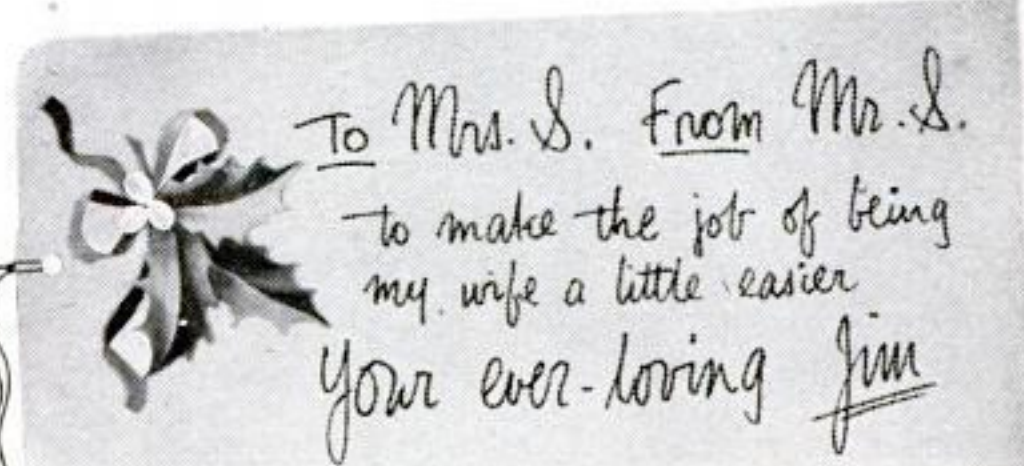 To Mrs. S. From Mr. S.
to make the job of being
my wife a little easier
Your ever-loving Jim